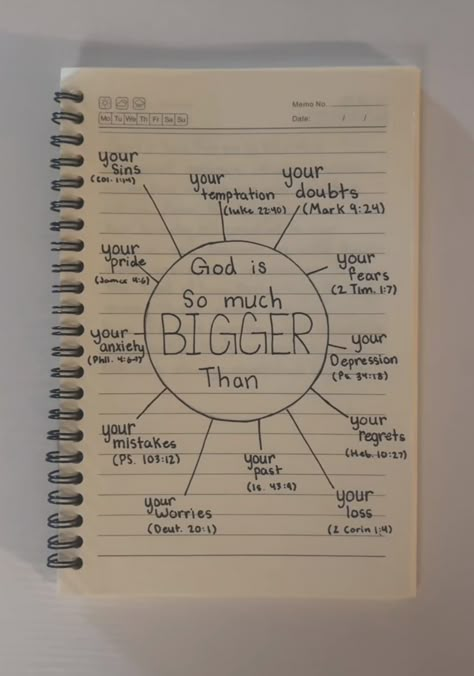 Memo No.
Mo Tu We Th Fr Sa Su
Date: / /
your
Sins
(Col. 1:14)
your
temptation
(luke 22:40)
your
doubts
(Mark 9:24)
your
pride
(James 4:6)
God is
So much
BIGGER
Than
your
fears
(2 Tim. 1:7)
your
anxiety
(Phil. 4:6-7)
your
Depression
(Ps. 34:18)
your
mistakes
(PS. 103:12)
your
past
(Is. 43:9)
your
regrets
(Heb. 10:27)
your
Worries
(Deut. 20:1)
your
loss
(2 Corin 1:4)